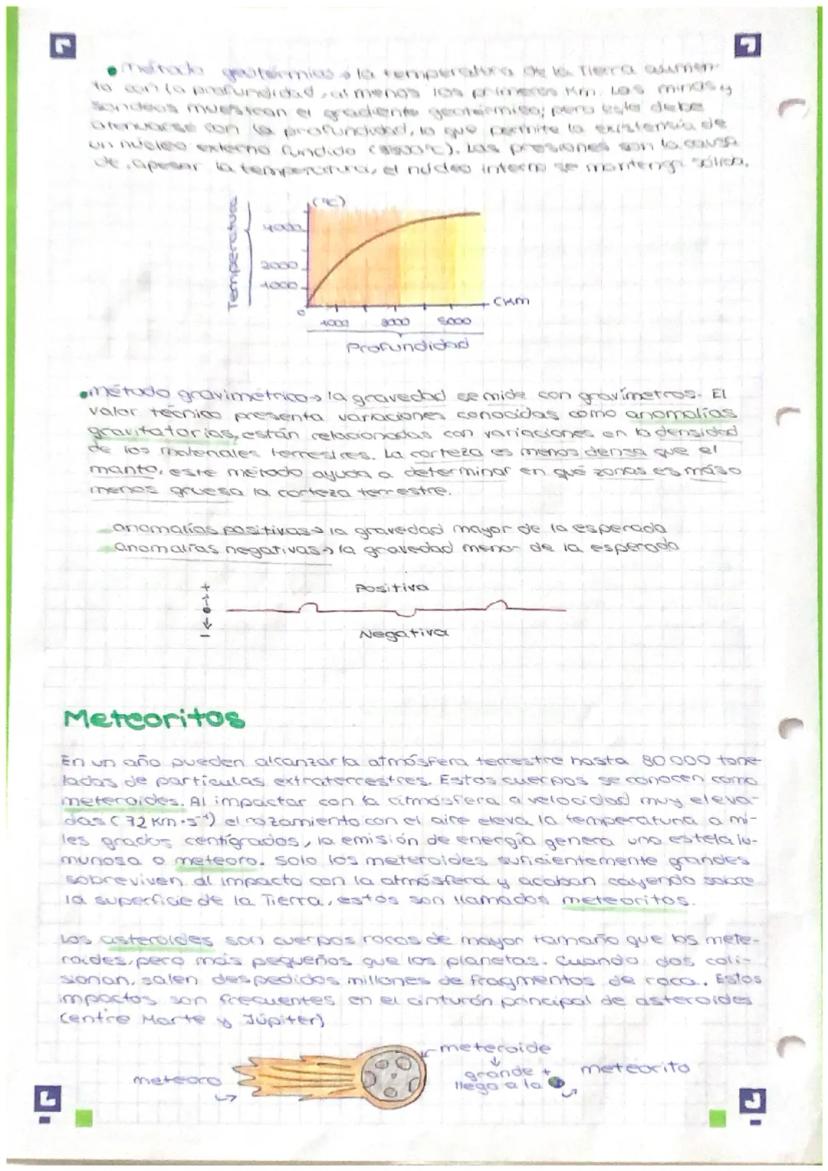 • método geotérmico → la temperatura de la Tierra aumen-
ta con la profundidad, al menos los primeros Km. Las minas y
sondeos muestran el gradiente geotérmico; pero este debe
atenuarse con la profundidad, lo que permite la existencia de
un núcleo externo fundido ( °C). Las presiones son la causa
de, apesar la temperatura, el núcleo interno se mantenga sólido.
(°C)
Temperatura
4000
2000
1000
0
1000 3000 5000
(Km
Profundidad
• método gravimétrico → la gravedad se mide con gravímetros. El
valor técnico presenta variaciones conocidas como anomalías
gravitatorias, están relacionadas con variaciones en la densidad
de los materiales terrestres. La corteza es menos densa que el
manto, este método ayuda a determinar en qué zonas es más o
menos gruesa la corteza terrestre.
anomalías positivas → la gravedad mayor de la esperada
anomalías negativas → la gravedad menor de la esperada
+
Positiva
-
Negativa
Meteoritos
En un año pueden alcanzar la atmósfera terrestre hasta 80000 tone-
ladas de partículas extraterrestres. Estos cuerpos se conocen como
meteroides. Al impactar con la atmósfera a velocidad muy eleva-
das (72 Km·s⁻¹) el rozamiento con el aire eleva la temperatura a mi-
les grados centígrados, la emisión de energía genera una estela lu-
munosa o meteoro. Solo los meteroides suficientemente grandes
sobreviven al impacto con la atmósfera y acaban cayendo sobre
la superficie de la Tierra, estos son llamados meteoritos.
Los asteroides son cuerpos rocas de mayor tamaño que los mete-
roides, pero más pequeños que los planetas. Cuando dos coli-
sionan, salen despedidos millones de fragmentos de roca. Estos
impactos son frecuentes en el cinturón principal de asteroides
(entre Marte y Júpiter)
meteroide
meteoro
grande +
llega a la
meteorito